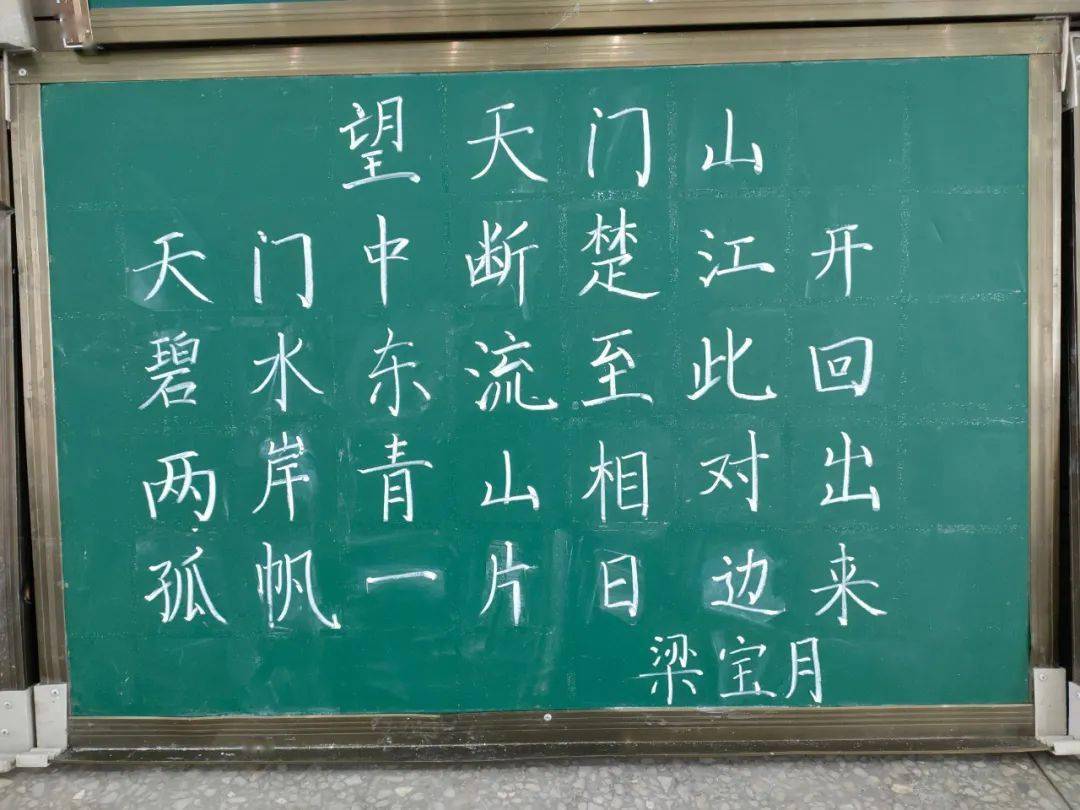 望天门山
天门中断楚江开
碧水东流至此回
两岸青山相对出
孤帆一片日边来
梁宝月